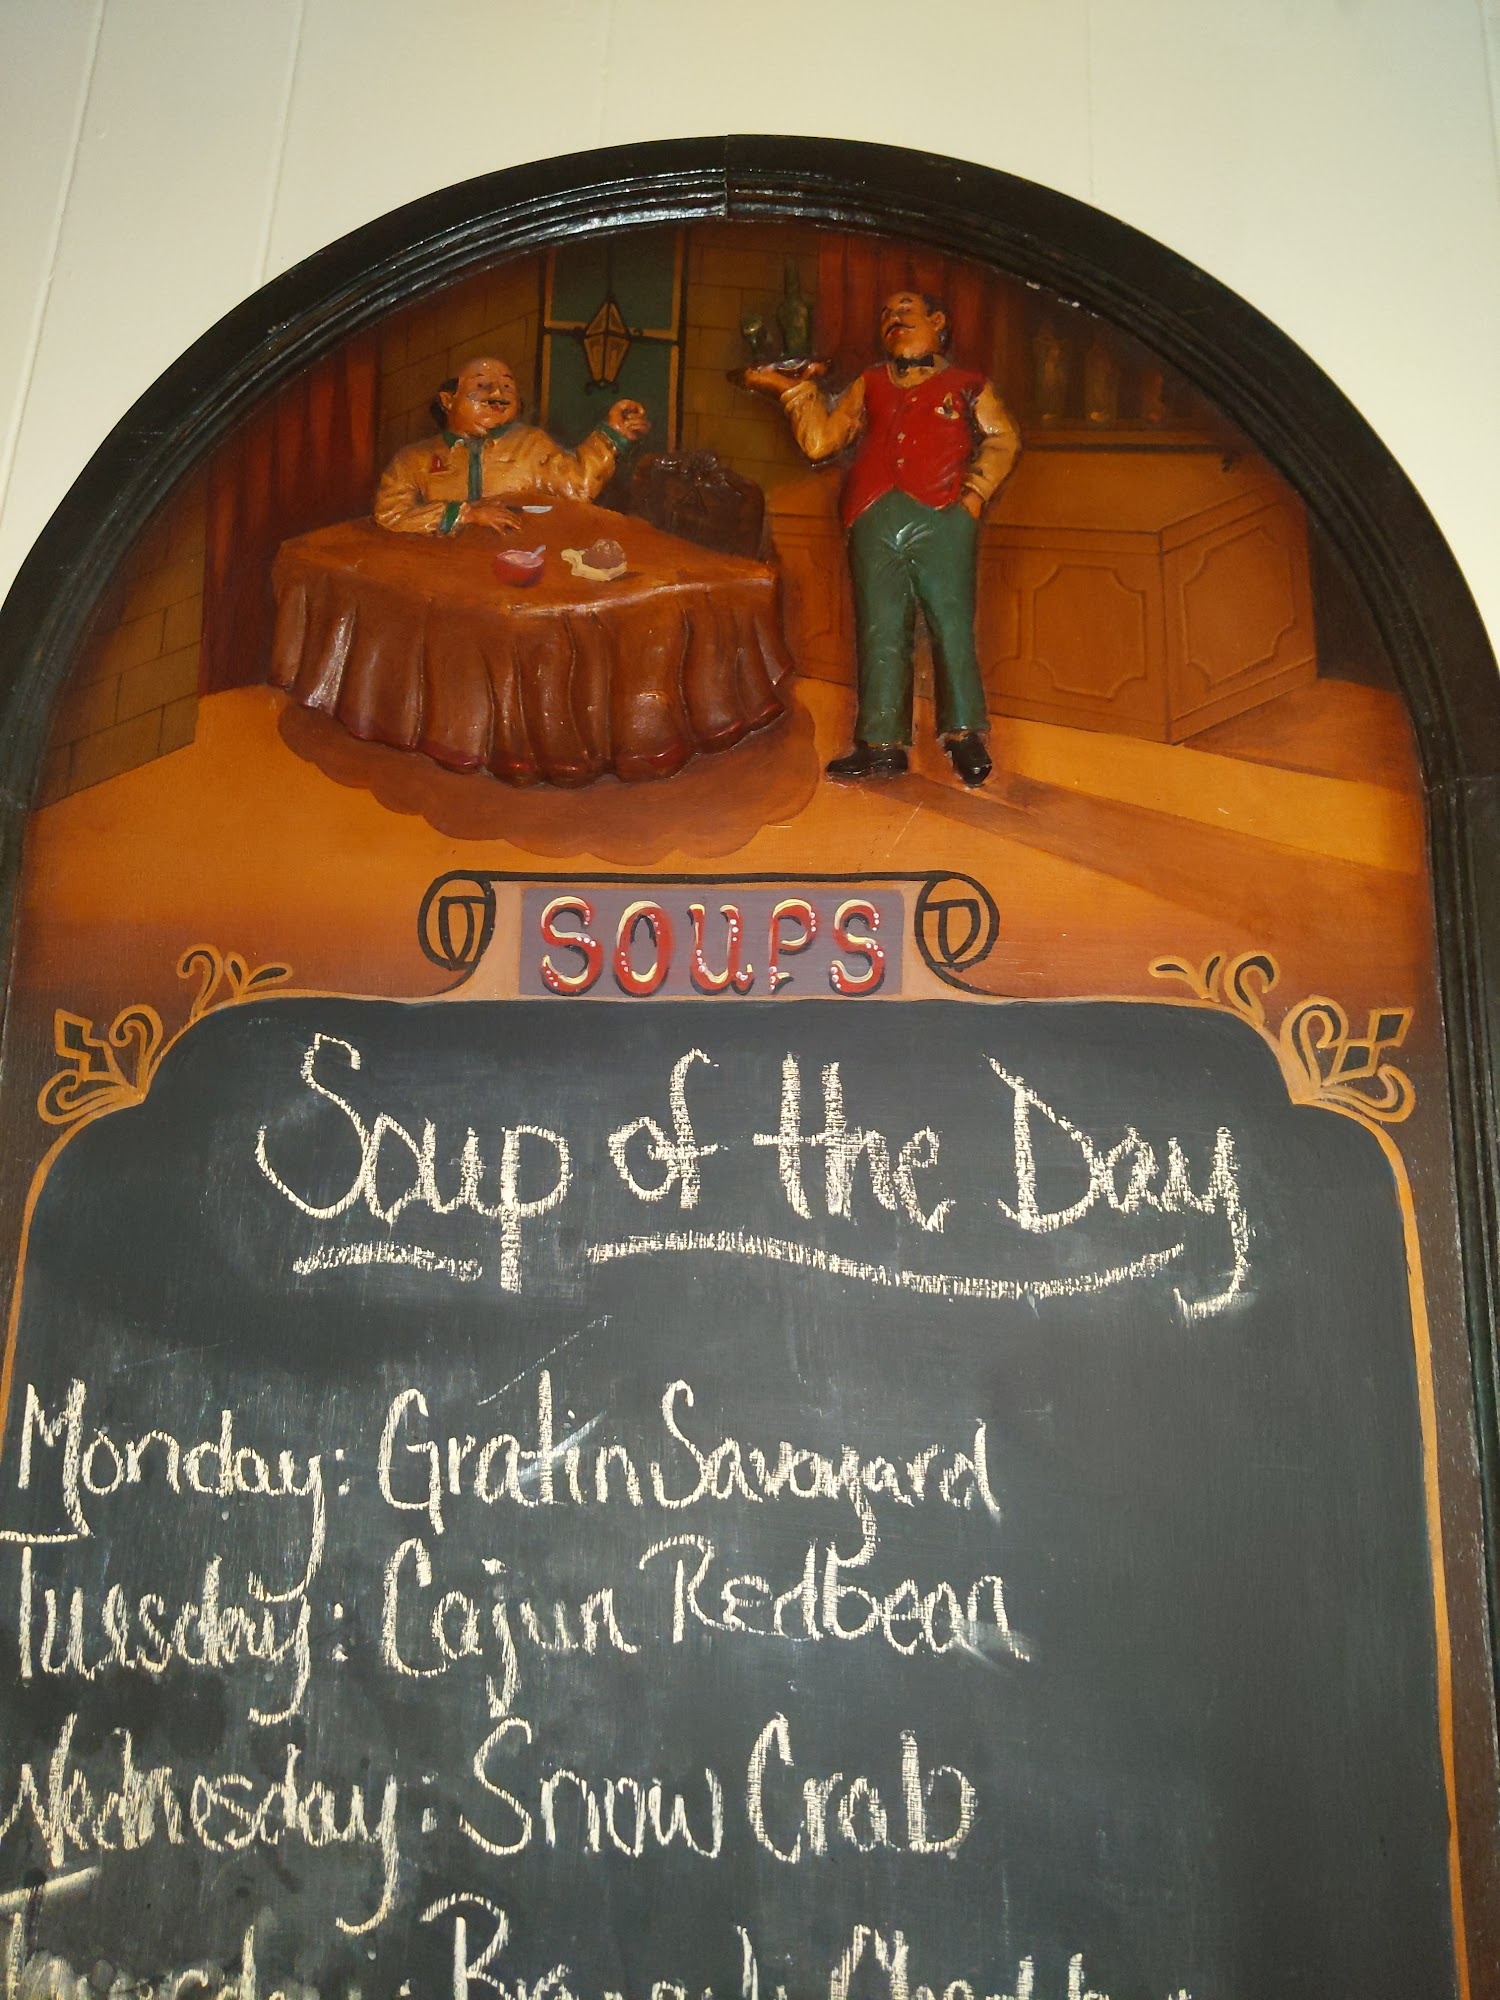 SOUPS
Soup of the Day
Monday: Gratin Savoyard
Tuesday: Cajun Redbean
Wednesday: Snow Crab